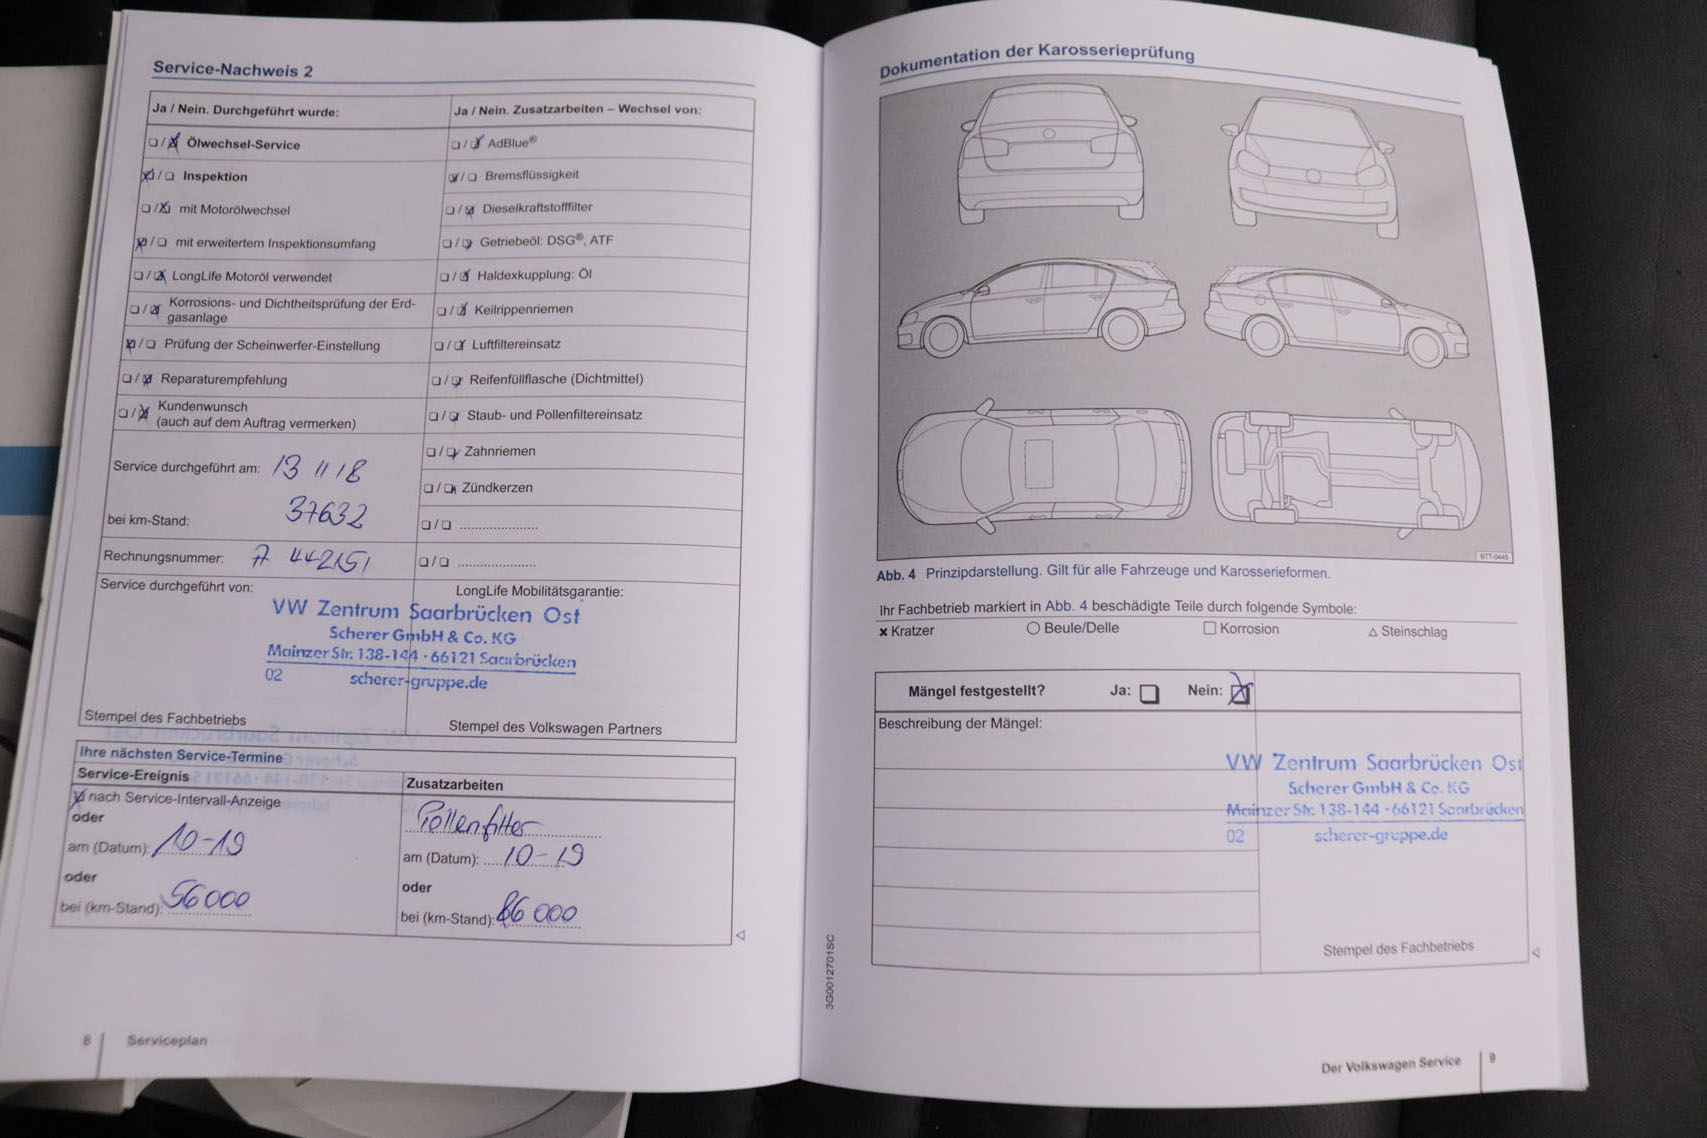 Service-Nachweis 2
Ja / Nein. Durchgeführt wurde:
Ja / Nein. Zusatzarbeiten – Wechsel von:
Ölwechsel-Service
AdBlue®
Inspektion
Bremsflüssigkeit
mit Motorölwechsel
Dieselkraftstofffilter
mit erweitertem Inspektionsumfang
Getriebeöl: DSG®, ATF
LongLife Motoröl verwendet
Haldexkupplung: Öl
Korrosions- und Dichtheitsprüfung der Erd-
gasanlage
Keilrippenriemen
Prüfung der Scheinwerfer-Einstellung
Luftfiltereinsatz
Reparaturempfehlung
Reifenfüllflasche (Dichtmittel)
Kundenwunsch
(auch auf dem Auftrag vermerken)
Staub- und Pollenfiltereinsatz
Zahnriemen
Service durchgeführt am: 13 11 18
Zündkerzen
bei km-Stand: 37632
Rechnungsnummer: A 442151
Service durchgeführt von:
LongLife Mobilitätsgarantie:
VW Zentrum Saarbrücken Ost
Scherer GmbH & Co. KG
Mainzer Str. 138-144 · 66121 Saarbrücken
02 scherer-gruppe.de
Stempel des Fachbetriebs
Stempel des Volkswagen Partners
Ihre nächsten Service-Termine
Service-Ereignis
Zusatzarbeiten
nach Service-Intervall-Anzeige
Pollenfilter
oder
am (Datum): 10-19
am (Datum): 10-19
oder
oder
bei (km-Stand): 56000
bei (km-Stand): 66 000
8 Serviceplan
Dokumentation der Karosserieprüfung
BTT-0449
Abb. 4 Prinzipdarstellung. Gilt für alle Fahrzeuge und Karosserieformen.
Ihr Fachbetrieb markiert in Abb. 4 beschädigte Teile durch folgende Symbole:
Kratzer
Beule/Delle
Korrosion
Steinschlag
Mängel festgestellt? Ja: Nein:
Beschreibung der Mängel:
VW Zentrum Saarbrücken Ost
Scherer GmbH & Co. KG
Mainzer Str. 138-144 · 66121 Saarbrücken
02 scherer-gruppe.de
Stempel des Fachbetriebs
3G0012701SC
Der Volkswagen Service 9